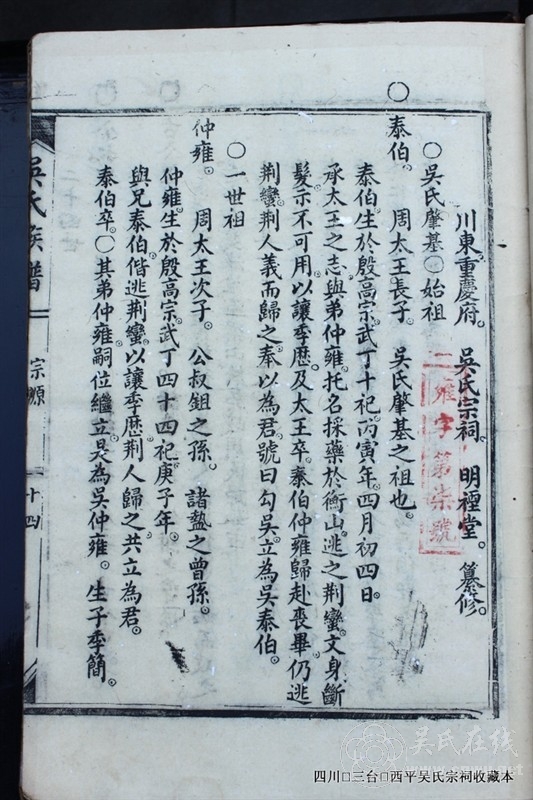 川東重慶府。吳氏宗祠。明禋堂。纂修。
二雍字第柒號
○吳氏肇基○始祖
○泰伯。周太王長子。吳氏肇基之祖也。
泰伯。生於殷高宗武丁十祀。丙寅年。四月初四日。
承太王之志。與弟仲雍。托名採藥於衡山。逃之荆蠻。文身斷
髮。示不可用。以讓季歷。及太王卒。泰伯仲雍歸赴喪畢。仍逃
荆蠻。荆人義而歸之。奉以為君。號曰勾吳。立為吳泰伯。
○一世祖
仲雍。周太王次子。公叔鉏之孫。諸盩之曾孫。
仲雍。生於殷高宗武丁四十四祀。庚子年。
與兄泰伯。偕逃荆蠻。以讓季歷。荆人歸之。共立為君。
泰伯卒。○其弟仲雍。嗣位繼立。是為吳仲雍。生子季簡。
吳氏族譜
宗源
十四
吴氏在线
四川□三台□西平吴氏宗祠收藏本